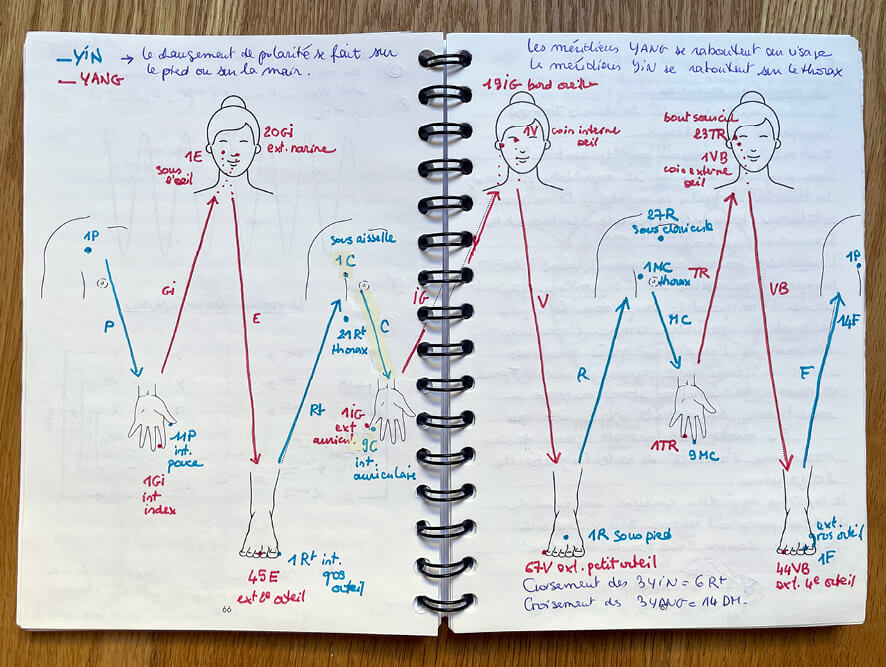 YiN → le changement de polarité se fait sur
le pied ou sur la main.
YANG
20Gi
ext. narine
1E
sous
l'oeil
1P
Gi
P
E
sous aisselle
1C
C
21Rt
thorax
Rt
11P
int.
pouce
1Gi
int
index
1iG
ext
auricul.
9C
int
auriculaire
45E
ext 2e orteil
1Rt int.
gros
orteil
66
Les méridiens YANG se raboutent au visage
Le méridiens YiN se raboutent sur le thorax
19iG bord oreille
1V coin interne
oeil
bout sourcil
23TR
1VB
coin externe
oeil
iG
V
27R
sous clavicule
1MC
thorax
TR
MC
R
VB
1P
14F
F
1TR
9MC
1R sous pied
67V ext. petit orteil
ext
gros orteil
1F
44VB
ext. 4e orteil
Croisement des 3 YiN = 6 Rt
Croisement ds 3 YANG = 14 DM.